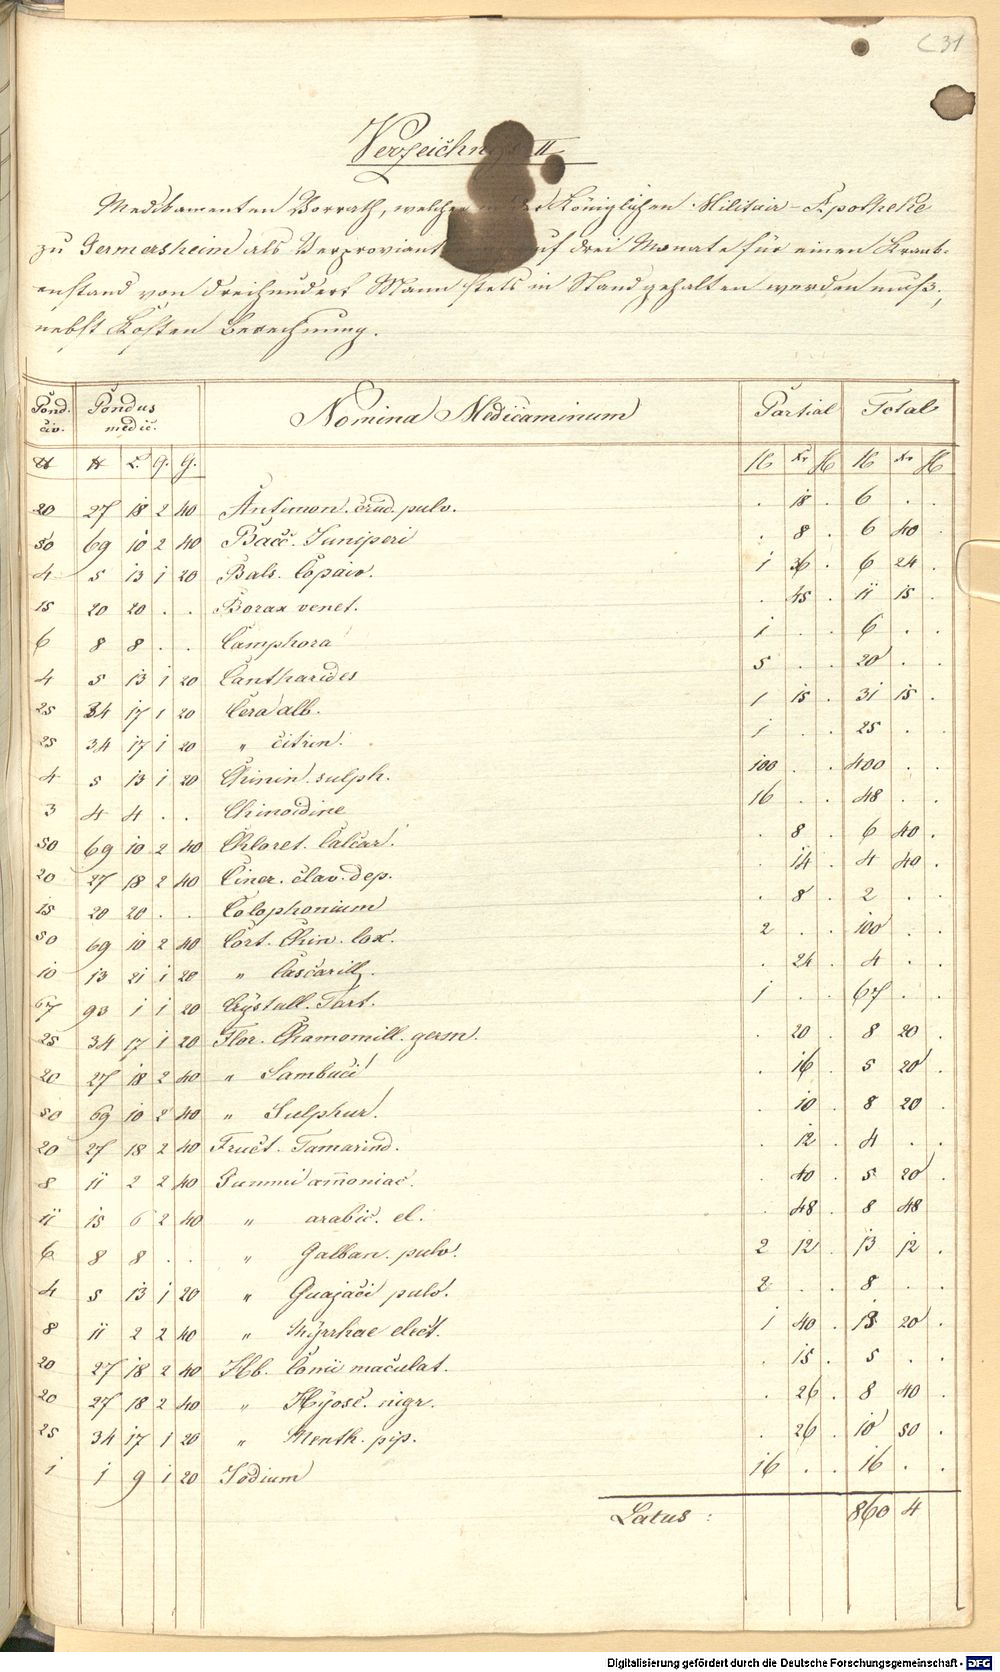 C 31
Verzeichniß II
Medicamenten Vorrath, welcher in der Königlichen Militair-Apotheke
zu Germersheim als Verproviant auf drei Monate für einen Krank-
enstand von dreihundert Mann stets in Stand gehalten werden muß,
nebst Kosten Berechnung.
Pond. civ. Pondus medic. Nomina Medicaminum Partial Total
℔ ℔ ℥. ʒ. G. fl Xr H fl Xr H
20 27 18 2 40 Antimon. crud. pulv. . 18 . 6 . .
50 69 10 2 40 Bacc. Juniperi . 8 . 6 40 .
4 5 13 1 20 Bals. Copaiv. 1 36 . 6 24 .
15 20 20 . . Borax venet. . 45 . 11 15 .
6 8 8 . . Camphora 1 . . 6 . .
4 5 13 1 20 Cantharides 5 . . 20 . .
25 34 17 1 20 Cera alb. 1 15 . 31 15 .
25 34 17 1 20 " citrin. 1 . . 25 . .
4 5 13 1 20 Chinin. sulph. 100 . . 400 . .
3 4 4 . . Chinoidine 16 . . 48 . .
50 69 10 2 40 Chloret. Calcar. . 8 . 6 40 .
20 27 18 2 40 Ciner. clav. dep. . 14 . 4 40 .
15 20 20 . . Colophonium . 8 . 2 . .
50 69 10 2 40 Cort. Chin. Lox. 2 . . 100 . .
10 13 21 1 20 " Cascarill. . 24 . 4 . .
67 93 1 1 20 Crystall. Tart. 1 . . 67 . .
25 34 17 1 20 Flor. Chamomill. germ. . 20 . 8 20 .
20 27 18 2 40 " Sambuci . 16 . 5 20 .
50 69 10 2 40 " Sulphur. . 10 . 8 20 .
20 27 18 2 40 Fruct. Tamarind. . 12 . 4 . .
8 11 2 2 40 Gummi am̄oniac. . 40 . 5 20 .
11 15 6 2 40 " arabic. el. . 48 . 8 48
6 8 8 . . " Galban. pulv. 2 12 . 13 12 .
4 5 13 1 20 " Guajaci pulv. 2 . . 8 . .
8 11 2 2 40 " Myrrhae elect. 1 40 . 13 20 .
20 27 18 2 40 Hb. Conii maculat. . 15 . 5 . .
20 27 18 2 40 " Hyosc. nigr. . 26 . 8 40 .
25 34 17 1 20 " Menth. pip. . 26 . 10 50 .
1 1 9 1 20 Jodium 16 . . 16 . .
Latus : 860 4
Digitalisierung gefördert durch die Deutsche Forschungsgemeinschaft - DFG